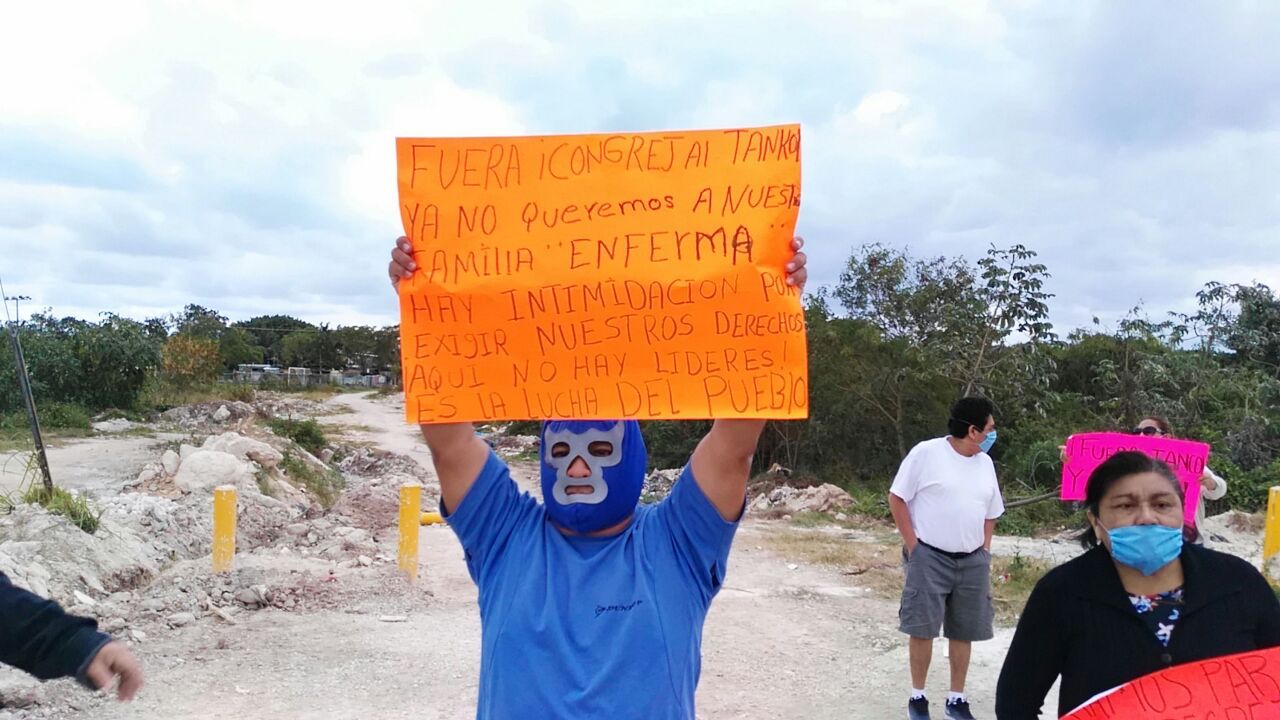 FUERA ¡CONGREJA! TANKO
YA NO Queremos A NUESTRA
FAMILIA "ENFERMA"
HAY INTIMIDACION POR
EXIJIR NUESTROS DERECHOS
AQUI NO HAY LIDERES!
ES LA LUCHA DEL PUEBLO
¡FUERA TANCO
Y